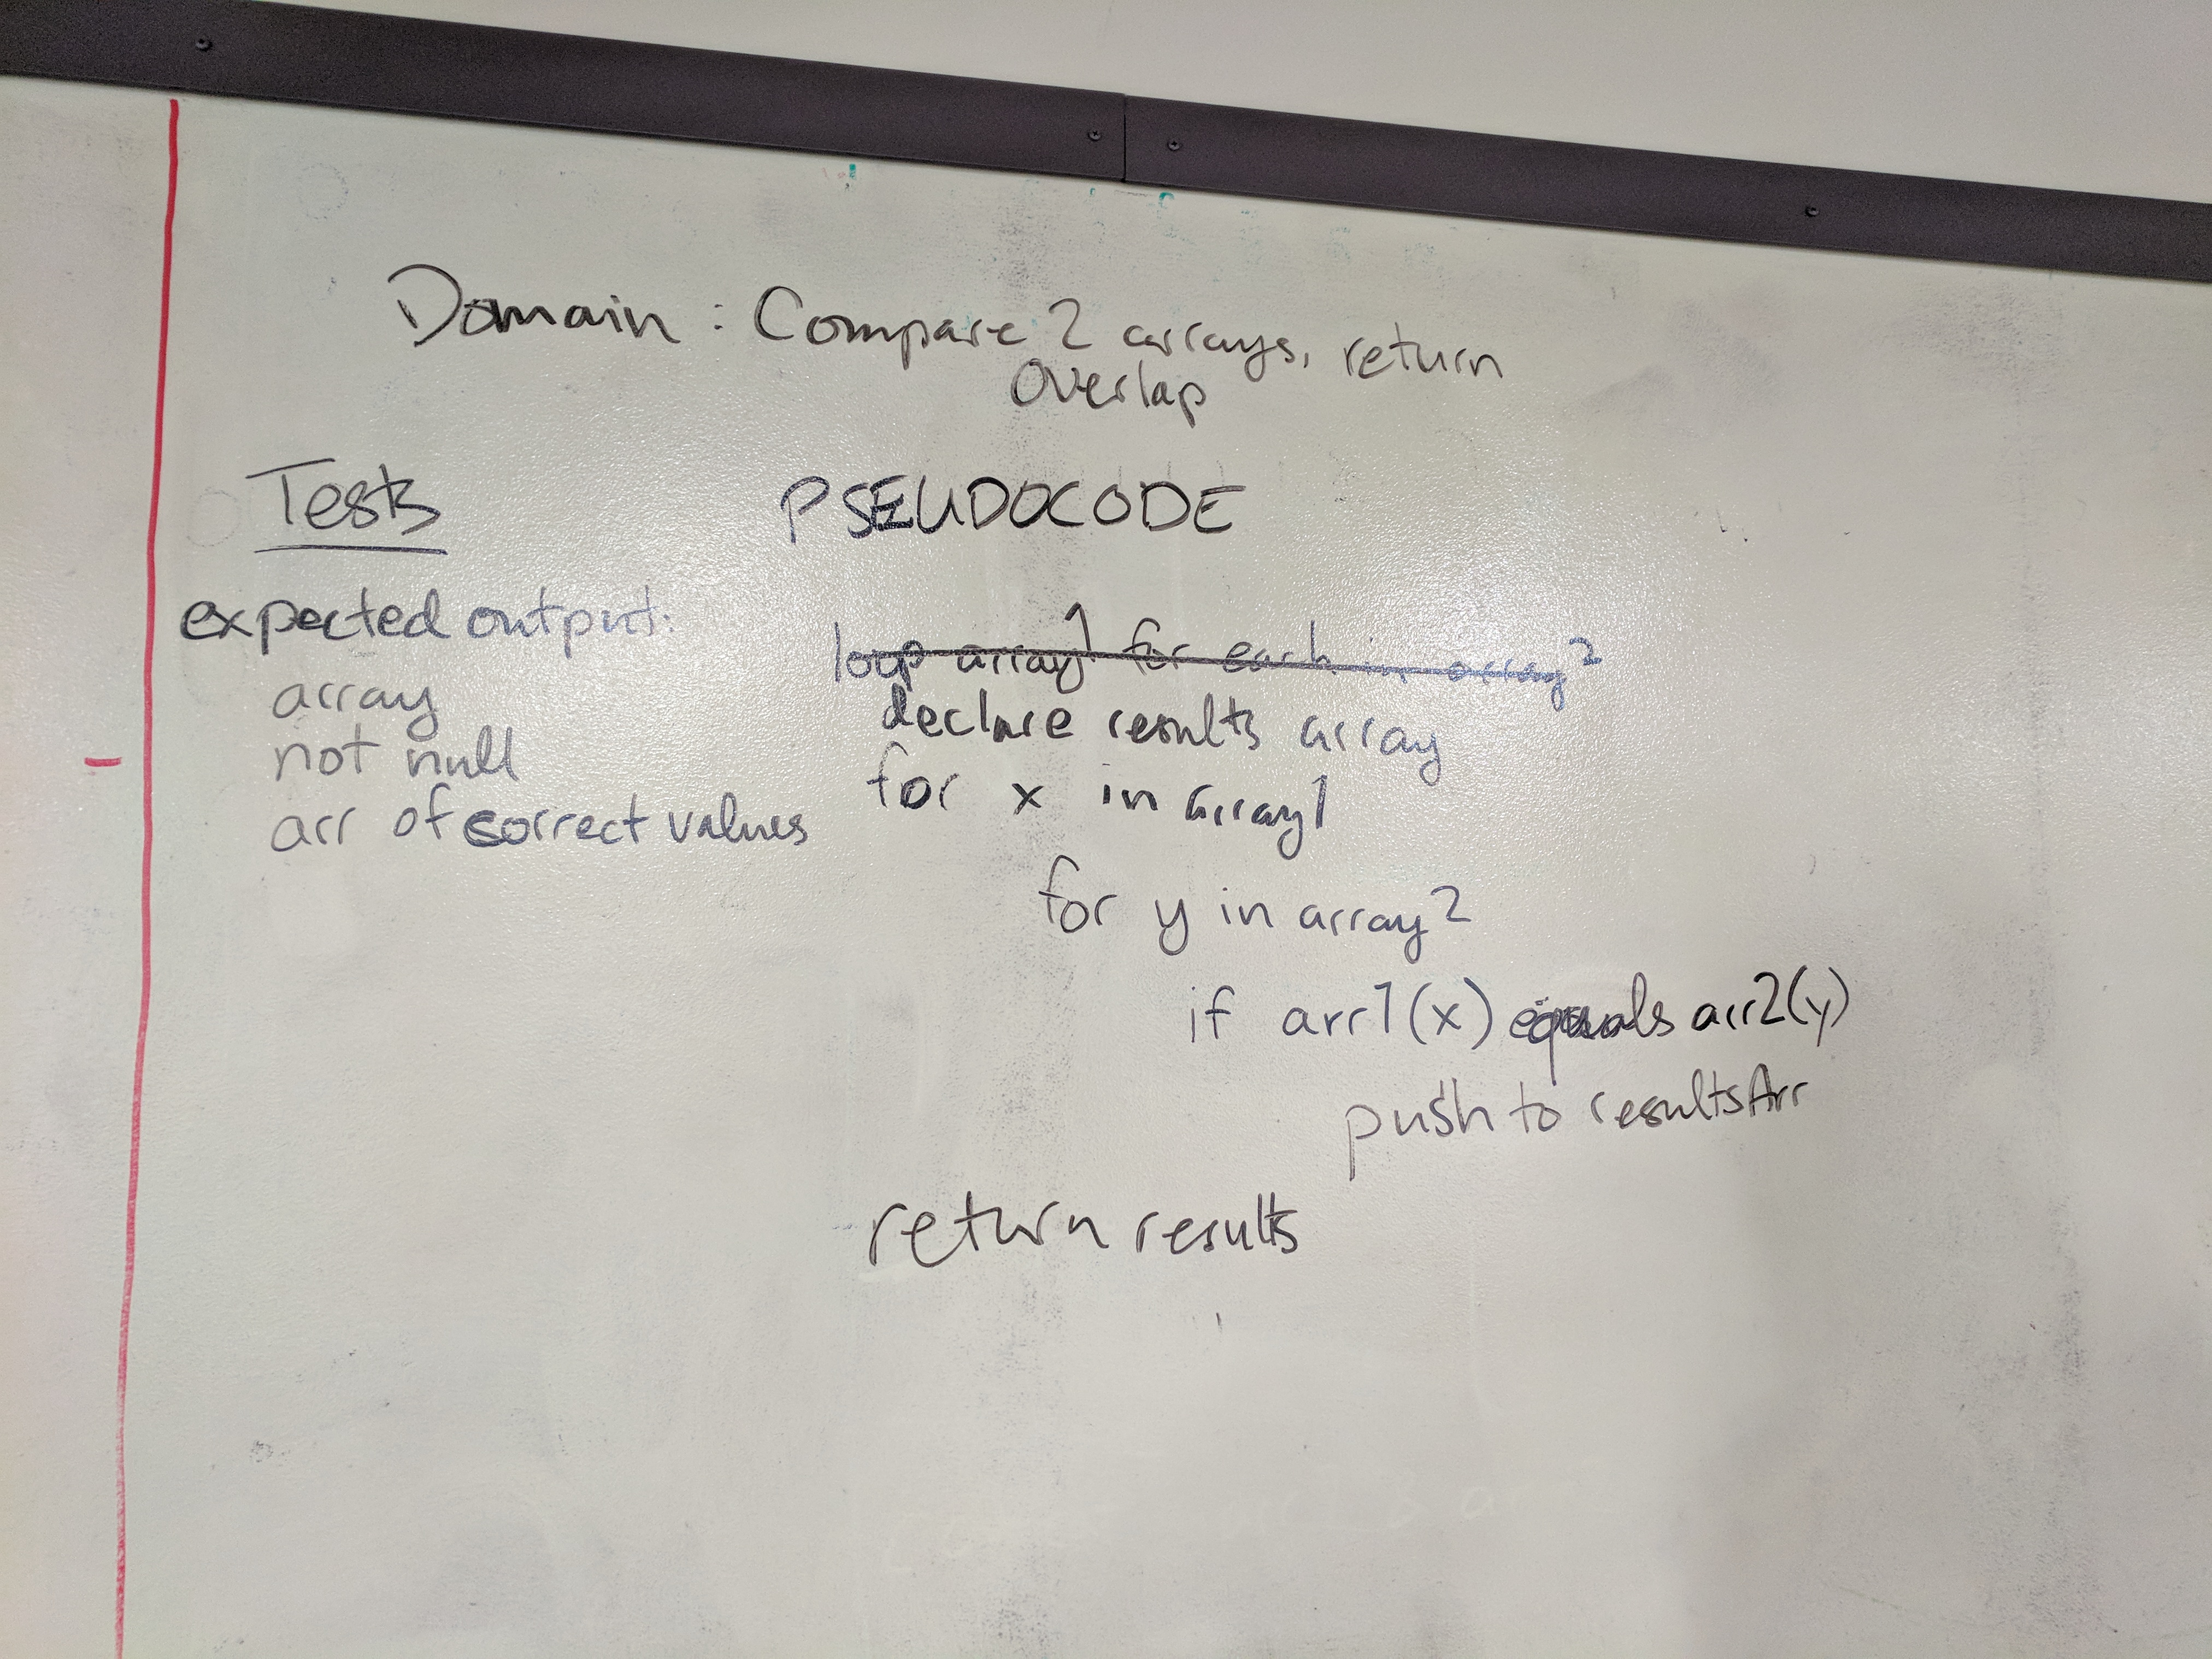 Domain : Compare 2 arrays, return
Overlap
Tests
expected output:
array
not null
arr of correct values
PSEUDOCODE
loop array1 for each in array2
declare results array
for x in array1
for y in array2
if arr1(x) equals arr2(y)
push to resultsArr
return results